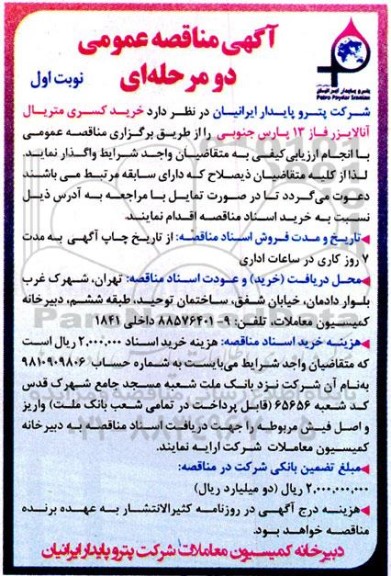 آگهی مناقصه عمومی
دو مرحله‌ای
نوبت اول
پترو پایدار ایرانیان
Petro Paydar Iranian
شرکت پترو پایدار ایرانیان در نظر دارد خرید کسری متریال
آنالایزر فاز ۱۳ پارس جنوبی را از طریق برگزاری مناقصه عمومی
با انجام ارزیابی کیفی به متقاضیان واجد شرایط واگذار نماید.
لذا از کلیه متقاضیان ذیصلاح که دارای سابقه مرتبط می باشند
دعوت می‌گردد تا در صورت تمایل با مراجعه به آدرس ذیل
نسبت به خرید اسناد مناقصه اقدام نمایند.
◄تاریخ و مدت فروش اسناد مناقصه: از تاریخ چاپ آگهی به مدت
۷ روز کاری در ساعات اداری
◄محل دریافت (خرید) و عودت اسناد مناقصه: تهران، شهرک غرب
بلوار دادمان، خیابان شفق، ساختمان توحید، طبقه ششم، دبیرخانه
کمیسیون معاملات، تلفن: ۹-۸۸۵۷۶۴۰۱ داخلی ۱۸۴۱
◄هزینه خرید اسناد مناقصه: هزینه خرید اسناد ۲,۰۰۰,۰۰۰ ریال است
که متقاضیان واجد شرایط می‌بایست به شماره حساب ۹۸۱۰۹۰۹۸۰۶
به‌نام آن شرکت نزد بانک ملت شعبه مسجد جامع شهرک قدس
کد شعبه ۶۵۶۵۶ (قابل پرداخت در تمامی شعب بانک ملت) واریز
و اصل فیش مربوطه را جهت دریافت اسناد مناقصه به دبیرخانه
کمیسیون معاملات شرکت ارایه نمایند.
◄مبلغ تضمین بانکی شرکت در مناقصه:
۲,۰۰۰,۰۰۰,۰۰۰ ریال (دو میلیارد ریال)
◄هزینه درج آگهی در روزنامه کثیرالانتشار به عهده برنده
مناقصه خواهد بود.
دبیرخانه کمیسیون معاملات شرکت پترو پایدار ایرانیان